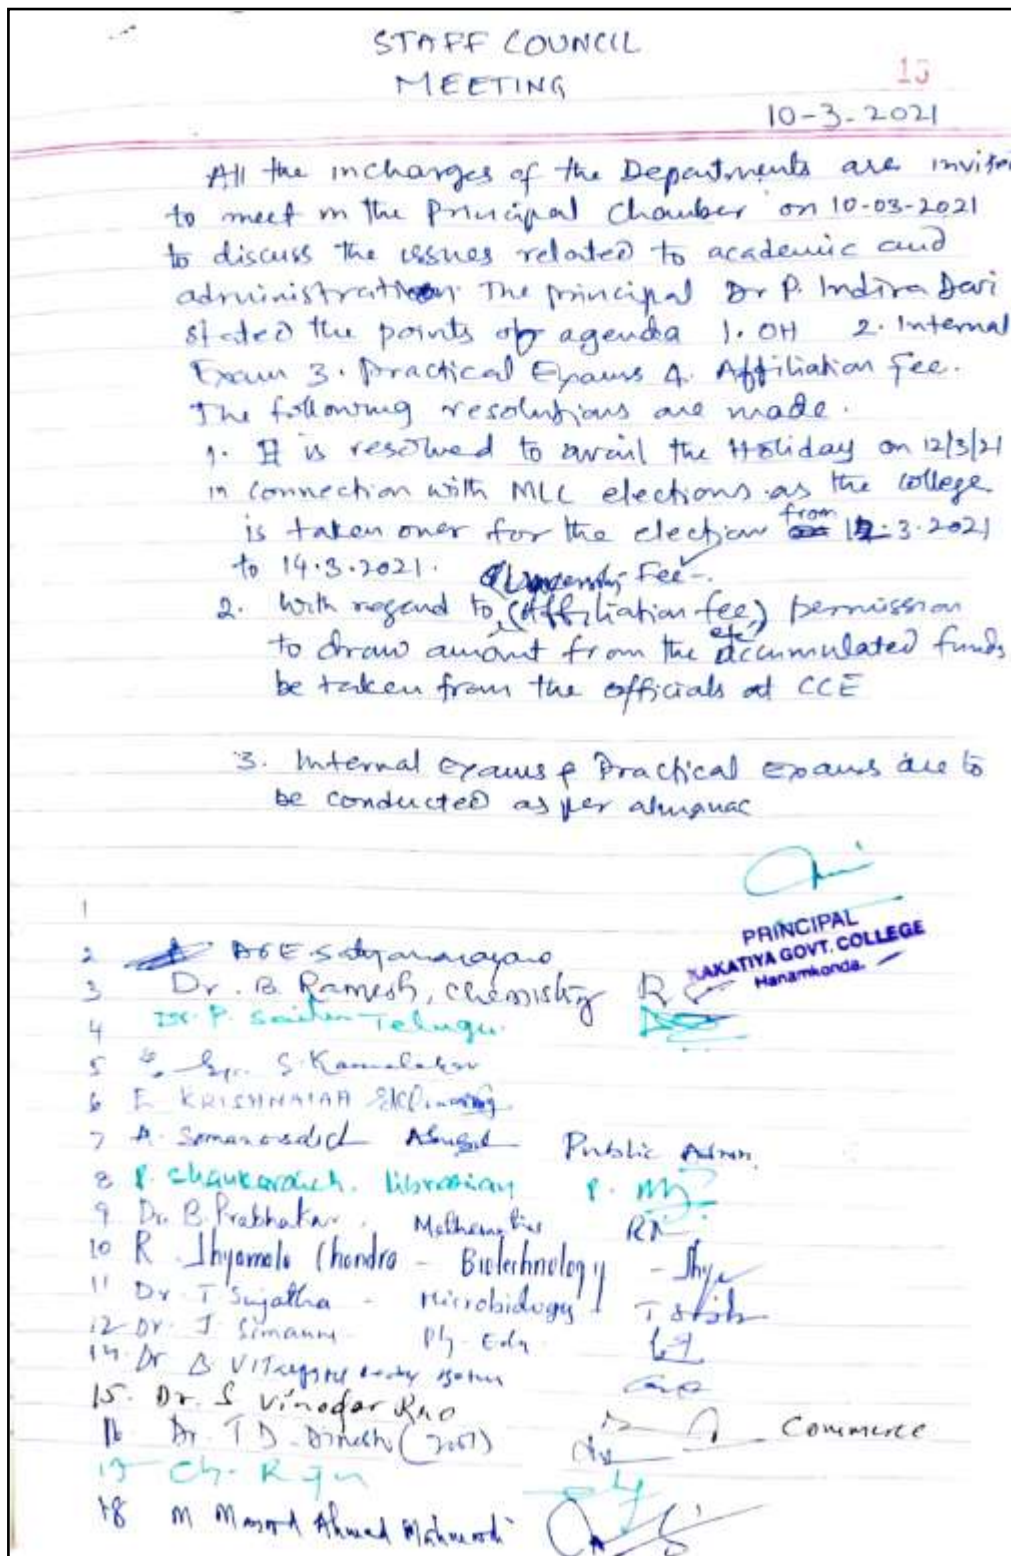 STAFF COUNCIL
MEETING
10-3-2021
All the incharges of the Departments are
to meet in the Principal Chamber on 10-03-2021
to discuss the issues related to academic and
administration. The principal Dr P. Indira Devi
stated the points of agenda 1. OH 2. Internal
Exam 3. Practical Exams 4. Affiliation Fee.
The following resolutions are made.
1. It is resolved to avail the Holiday on 12/3/21
in connection with MLC elections as the college
is taken over for the election from 12.3.2021
to 14.3.2021. University Fee
2. With regard to (Affiliation fee,) permission
etc
to draw amount from the accumulated funds
be taken from the officials at CCE
3. Internal exams & Practical exams are to
be conducted as per almanac
PRINCIPAL
KAKATIYA GOVT. COLLEGE
Hanamkonda.
1
2
3 Dr. B. Ramesh, Chemistry
4 Dr. P. Telugu.
5 S. Kamalakar
6 E KRISHNAIAH
7 A. Public Admn.
8 P. librarian P.
9 Dr. B. Prabhakar. Mathematics
10 R. Shyamala Chandra - Biotechnology -
11 Dr T Sujatha - Microbiology
12 Dr. J. Ph. Edn
14. Dr B
15. Dr. S Vinodar Rao Commerce
16 Dr. T D. Dinesh
17 Ch. Raju
18 M Masood Ahmad